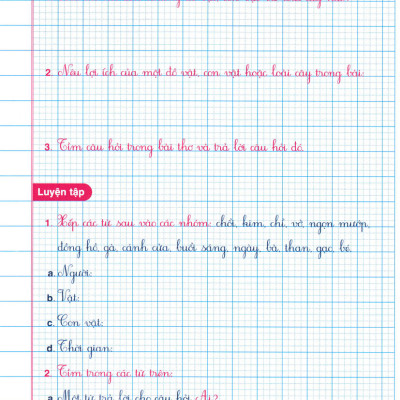 2. Nêu lợi ích của một đồ vật, con vật hoặc loài cây trong bài:
3. Tìm câu hỏi trong bài thơ và trả lời câu hỏi đó.
Luyện tập
1. Xếp các từ sau vào các nhóm: chổi, kim, chỉ, vở, ngọn mướp,
đồng hồ, gà, cánh cửa, buổi sáng, ngày, bà, than, gạc, bé.
a. Người:
b. Vật:
c. Con vật:
d. Thời gian:
2. Tìm trong các từ trên:
a. Một từ trả lời cho câu hỏi Ai?